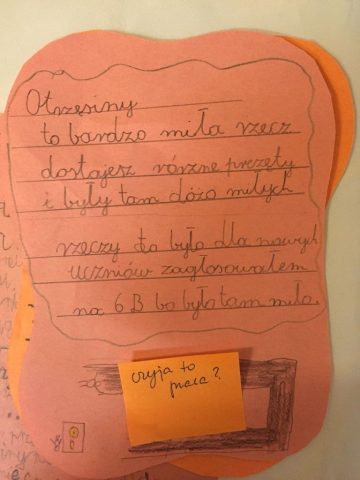 Otrzęsiny
to bardzo miła rzecz
dostajesz różne prezęty
i były tam dóżo miłych
rzeczy to było dla nowych
uczniów zagłosowałem
na 6 B bo było tam miło.
czyja to
praca?